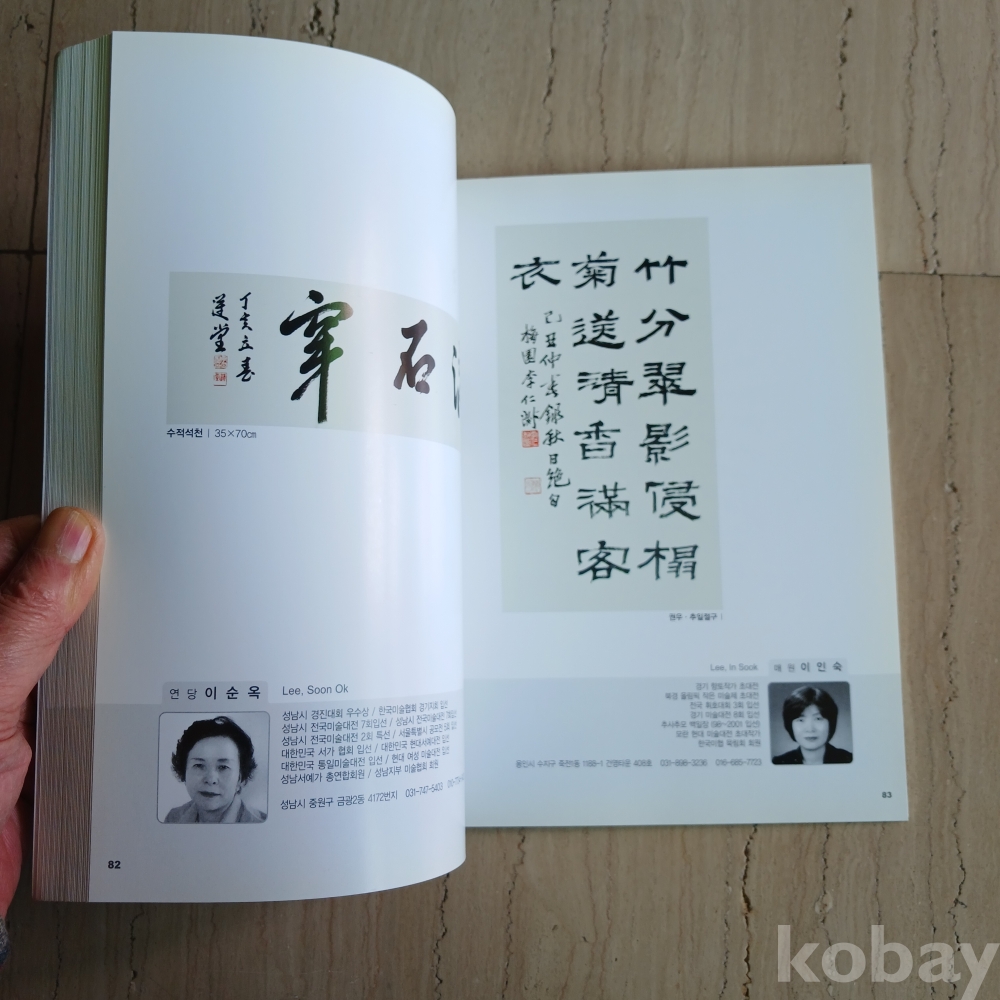 丁亥立春
蓮堂
穿
石
수적석천 | 35×70㎝
연 당 이 순 옥
Lee, Soon Ok
성남시 경진대회 우수상 / 한국미술협회 경기지회 입선
성남시 전국미술대전 7회입선 / 성남시 전국미술대전
성남시 전국미술대전 2회 특선 / 서울특별시 공모전 5회 입선
대한민국 서가 협회 입선 / 대한민국 현대서예대전 입선
대한민국 통일미술대전 입선 / 현대 여성 미술대전 입선
성남서예가 총연합회원 / 성남지부 미술협회 회원
성남시 중원구 금광2동 4172번지 031-747-5403
82
竹分翠影侵榻
菊送清香滿客
衣
己丑仲春錄秋日絶句
梅園李仁淑
권우 · 추일절구 |
Lee, In Sook
매 원 이 인 숙
경기 향토작가 초대전
북경 올림픽 작은 미술제 초대전
전국 휘호대회 3회 입선
경기 미술대전 8회 입선
추사추모 백일장 (98~2001 입선)
모란 현대 미술대전 초대작가
한국미협 목림회 회원
용인시 수지구 죽전1동 1188-1 건영타운 406호 031-898-3236 016-685-7723
83
kobay